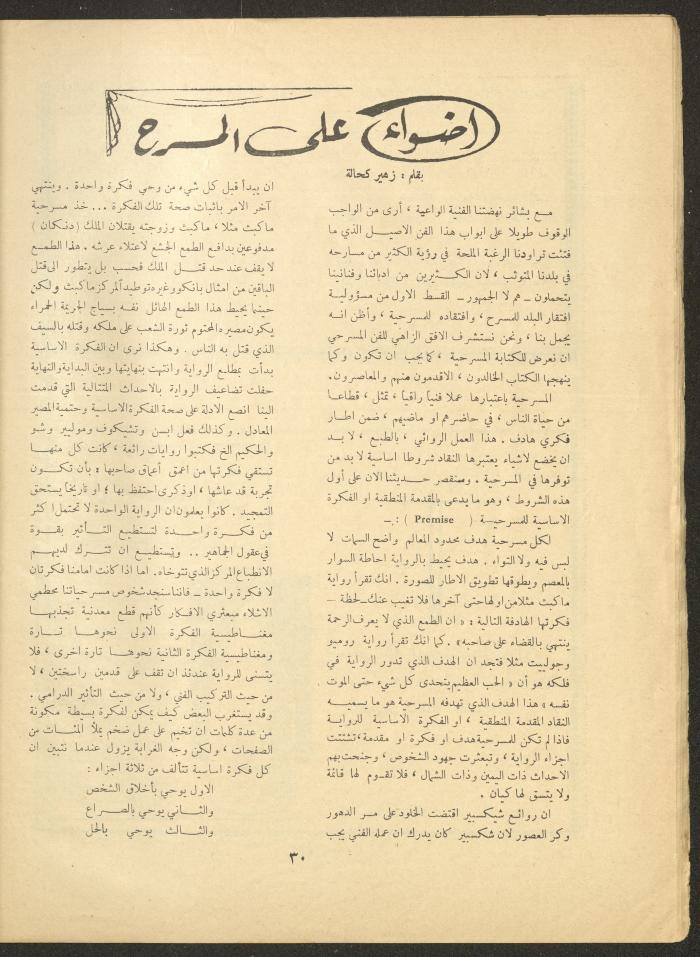 اضواء على المسرح
بقلم : زهير كحالة
مـع بشائر نهضتنا الفنية الواعية ، أرى من الواجب
الوقوف طويلا على ابواب هذا الفن الاصيل الذي ما
فتئت تراودنا الرغبة الملحة في رؤية الكثير من مسارحه
في بلدنا المتوثب ، لان الكثيرين من ادبائنا وفنانينا
يتحملون - هم لا الجمهور - القسط الاول من مسؤولية
افتقار البلد للمسرح ، وافتقاده للمسرحية ، وأظن انه
يجمل بنا ، ونحن نستشرف الافق الزاهي للفن المسرحي
ان نعرض للكتابة المسرحية ، كما يجب ان تكون وكما
ينهجها الكتاب الخالدون ، الاقدمون منهم والمعاصرون.
المسرحية باعتبارها عملا فنياً راقياً ، تمثل ، قطاعا
من حياة الناس ، في حاضرهم او ماضيهم ، ضمن اطار
فكري هادف . هذا العمل الروائي ، بالطبع ، لا بد
ان يخضع لاشياء يعتبرها النقاد شروطا اساسية لا بد من
توفرها في المسرحية . وسنقصر حديثنا الان على أول
هذه الشروط ، وهو ما يدعى بالمقدمة المنطقية او الفكرة
الاساسية للمسرحية ( Premise ) : ــ
لكل مسرحية هدف محدود المعالم واضح السمات لا
لبس فيه ولا التواء . هدف يحيط بالرواية احاطة السوار
بالمعصم ويطوقها تطويق الاطار للصورة . انك تقرأ رواية
ماكبث مثلا من اولها حتى آخرها فلا تغيب عنك - لحظة -
فكرتها الهادفة التالية : « ان الطمع الذي لا يعرف الرحمة
ينتهي بالقضاء على صاحبه » . كما انك تقرأ رواية روميو
وجولييت مثلا فتجد ان الهدف الذي تدور الرواية في
فلكه هو أن « الحب العظيم يتحدى كل شيء حتى الموت
نفسه » هذا الهدف الذي تهدفه المسرحية هو ما يسميه
النقاد المقدمة المنطقية ، او الفكرة الاساسية للرواية
فاذا لم تكن للمسرحية هدف او فكرة او مقدمة ، تشتتت
اجزاء الرواية ، وتبعثرت جهود الشخوص ، وجنحت بهم
الاحداث ذات اليمين وذات الشمال ، فلا تقوم لها قائمة
ولا يتسق لها كيان .
ان روائع شيكسبير اقتضت الخلود على مر الدهور
وكر العصور لان شكسبير كان يدرك ان عمله الفني يجب
ان يبدأ قبل كل شيء من وحي فكرة واحدة . وينتهي
آخر الامر باثبات صحة تلك الفكرة ... خذ مسرحية
ماكبث مثلا ، ماكبث وزوجته يقتلان الملك ( دنكان )
مدفوعين بدافع الطمع الجشع لاعتلاء عرشه . هذا الطمع
لا يقف عند حد قتل الملك فحسب بل يتطور الى قتل
الباقين من امثال بانكو وغيره توطيداً لمركز ماكبث ولكن
حينما يحيط هذا الطمع الهائل نفسه بسياج الجريمة الحمراء
يكون مصيره المحتوم ثورة الشعب على ملكه وقتله بالسيف
الذي قتل به الناس . وهكذا نرى ان الفكرة الاساسية
بدأت بمطلع الرواية وانتهت بنهايتها وبين البداية والنهاية
حفلت تضاعيف الرواية بالاحداث المتتالية التي قدمت
الينا انصع الادلة على صحة الفكرة الاساسية وحتمية المصير
المعادل . وكذلك فعل ابسن وتشيكوف وموليير وشو
والحكيم الخ فكتبوا روايات رائعة ، كانت كل منها
تستقي فكرتها من اعمق أعماق صاحبها : بأن تكون
تجربة قد عاشها ، او ذكرى احتفظ بها ؛ او تاريخاً يستحق
التمجيد . كانوا يعلمون ان الرواية الواحدة لا تحتمل اكثر
من فكرة واحدة لتستطيع التأثير بقوة
في عقول الجماهير .. وتستطيع ان تترك لديهم
الانطباع المركز الذي تتوخاه . اما اذا كانت امامنا فكرتان
لا فكرة واحدة - فاننا سنجد شخوص مسرحياتنا محطمي
الاشلاء مبعثري الافكار كأنهم قطع معدنية تجذبها
مغناطيسية الفكرة الاولى نحوها تارة
ومغناطيسية الفكرة الثانية نحوها تارة اخرى ، فلا
يتسنى للرواية عندئذ ان تقف على قدمين راسختين ، لا
من حيث التركيب الفني ، ولا من حيث التأثير الدرامي .
وقد يستغرب البعض كيف يمكن لفكرة بسيطة مكونة
من عدة كلمات ان تخيم على عمل ضخم يملأ المئات من
الصفحات ، ولكن وجه الغرابة يزول عندما نتبين ان
كل فكرة اساسية تتألف من ثلاثة اجزاء :
الاول يوحي بأخلاق الشخص
والثاني يوحي بالصراع
والثالث يوحي بالحل
٣٠